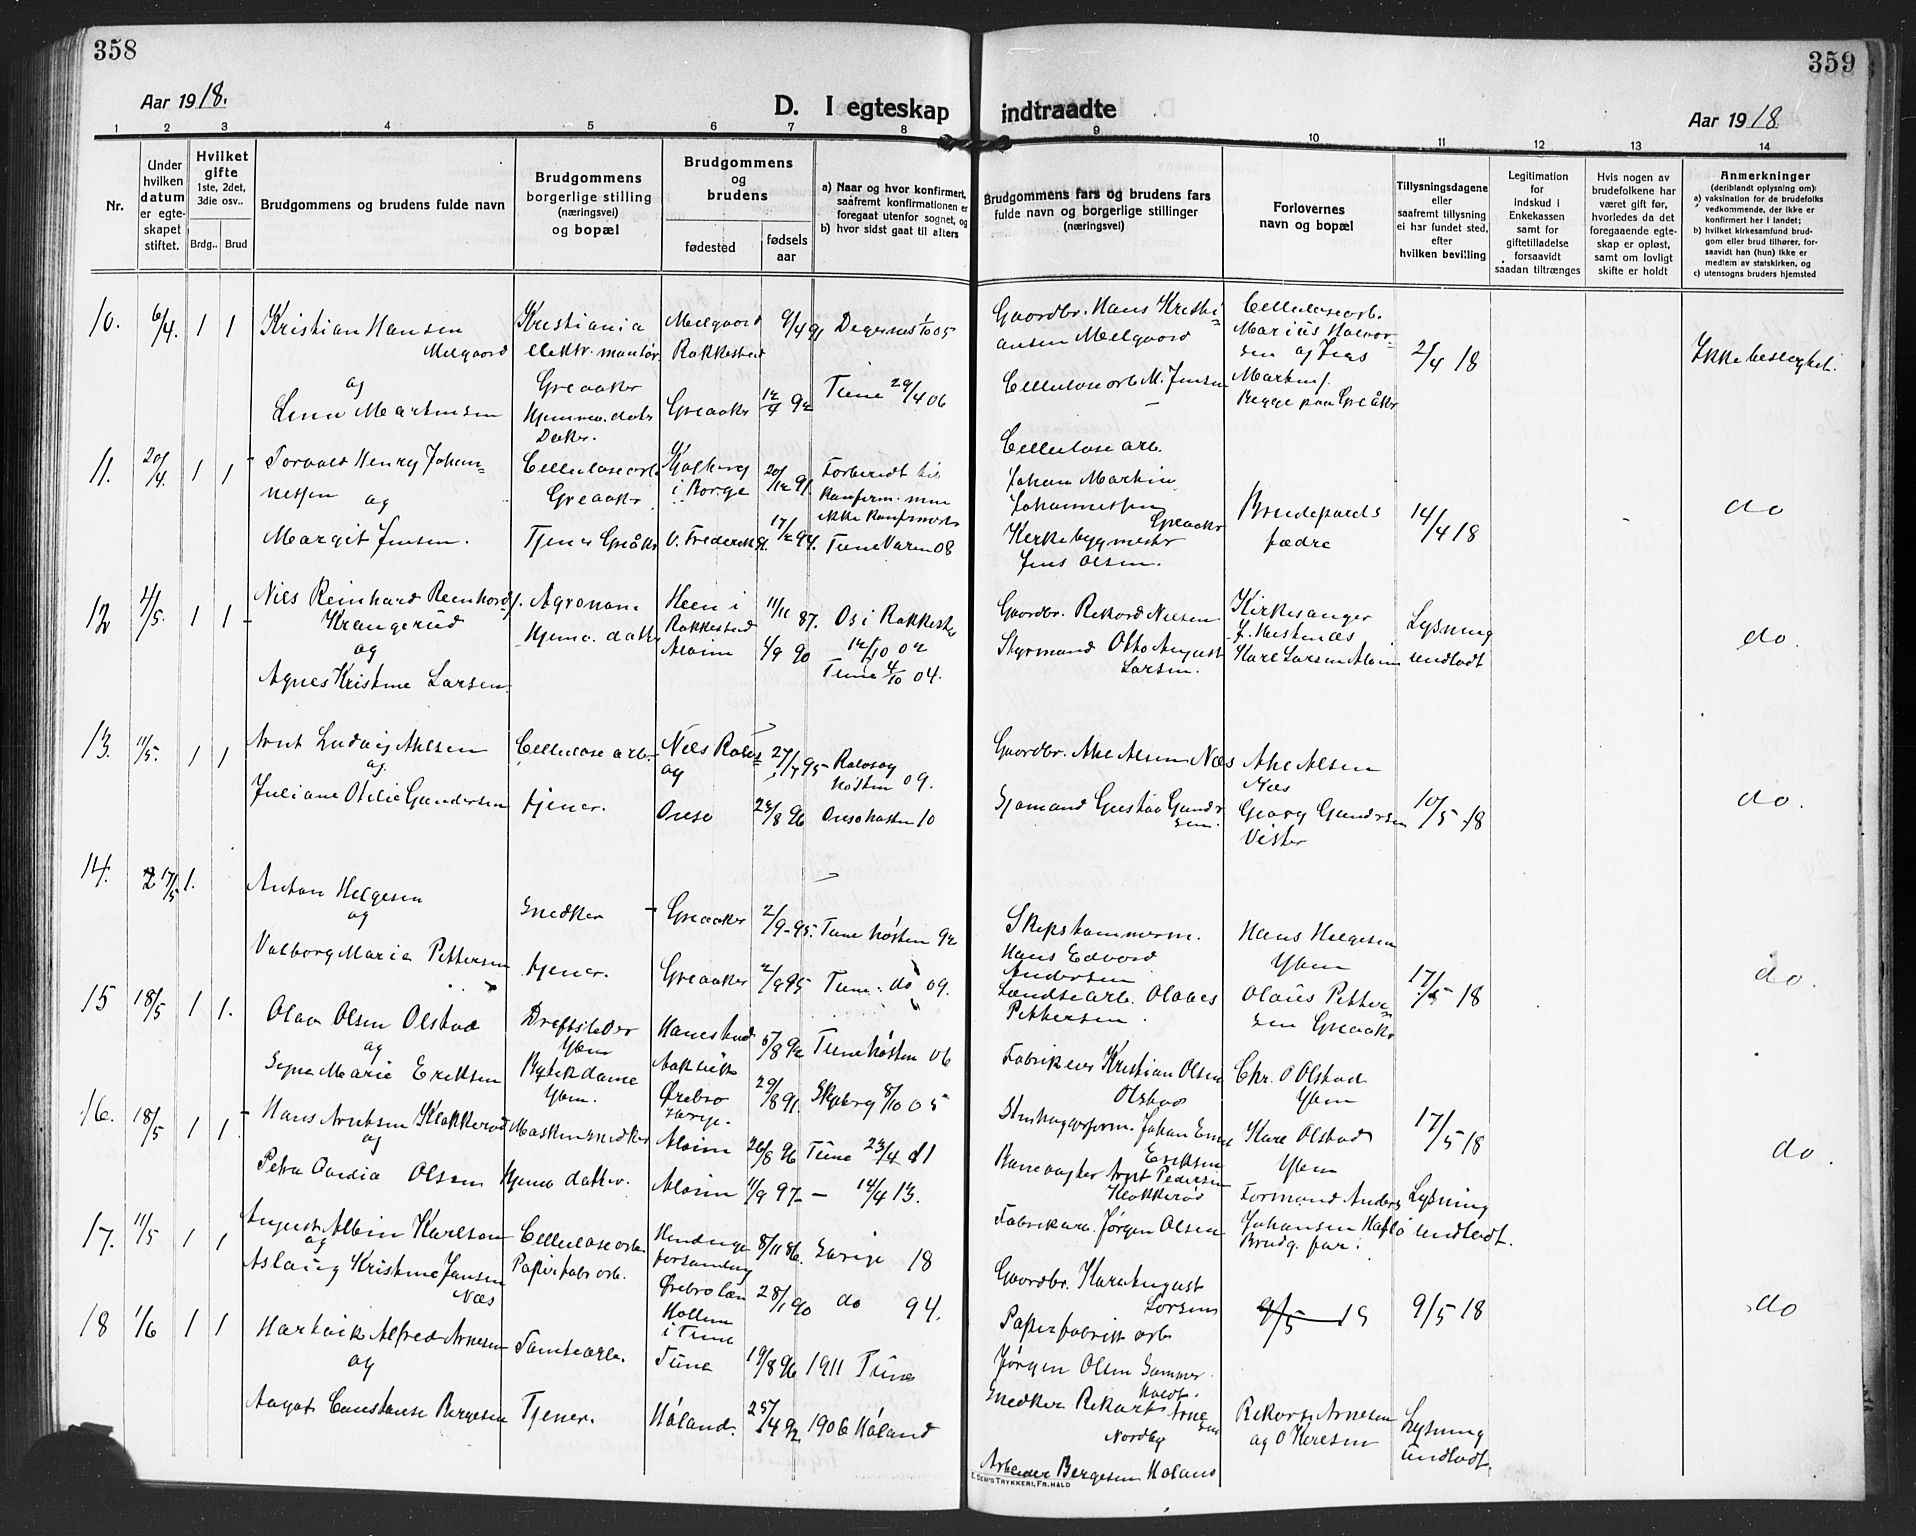 358
359
Aar 1918.
D. I egteskap indtraadte
Aar 1918
1 2 3 4 5 6 7 8 9 10 11 12 13 14
Nr.
Under hvilken datum er egteskapet stiftet.
Hvilket gifte 1ste, 2det, 3die osv..
Brdg.. Brud
Brudgommens og brudens fulde navn
Brudgommens borgerlige stilling (næringsvei) og bopæl
Brudgommens og brudens
fødested
fødsels aar
a) Naar og hvor konfirmert, saafremt konfirmationen er foregaat utenfor sognet, og
b) hvor sidst gaat til alters
Brudgommens fars og brudens fars fulde navn og borgerlige stillinger (næringsvei)
Forlovernes navn og bopæl
Tillysningsdagene eller saafremt tillysning ei har fundet sted, efter hvilken bevilling
Legitimation for indskud i Enkekassen samt for giftetilladelse forsaavidt saadan tiltrænges
Hvis nogen av brudefolkene har været gift før, hvorledes da det foregaaende egteskap er opløst, samt om lovligt skifte er holdt
Anmerkninger
(deriblandt oplysning om:
a) vaksination for de brudefolks vedkommende, der ikke er konfirmert her i landet;
b) hvilket kirkesamfund brudgom eller brud tilhører, forsaavidt han (hun) ikke er medlem av statskirken, og
c) utensogns bruders hjemsted
10. 6/4. 1 1
Kristian Hansen
Melgaard
og
Lina Martinsen
Kristiania
elektr. montør
Greaaker
Hjemmev. datter
Melgaard 9/4 91
Rakkestad
Greaaker 12/4 92
Degernes 1/10 05
Tune 29/4 06
Gaardbr. Hans Kristi-
ansen Melgaard
Cellulosearb. M. Jensen
Cellulosearb.
Marius Halvor-
sen og Jens
Martins.
Begge paa Greåker
2/4 18
Ikke beslegtet.
11. 20/4. 1 1
Torvald Henry Johan-
nessen og
Margit Jensen.
Cellulosearb.
Greaaker
Tjener Greåker
Kjølberg 20/12 91
i Borge
Fr
17/2 94.
Forberedt til
Konfirm. men
ikke konfirmert
Tune Vaaren 08
Cellulose arb.
Johan Martin
Johannessen
Greaaker
Kirkebygmester
Jens Olsen.
Brudeparets
fædre
14/4 18
do
12 4/5. 1 1
Nils Reinhard Reinhards.
Krangerud
og
Agnes Kristine Larsen.
Agronom
Hjemv. datter
Heen i 11/11 87.
Rakkestad
Alvim 1/9 90
Os i Rakkestad
12/10 02
Tune 4/10 04.
Gaardbr. Rikard Nielsen
Styrmand Otto August
Larsen.
Kirkesanger
Karl Larsen Alvim
Lysning
undladt
do.
13. 11/5. 1 1
Arnt Ludvig Ahlsen
og
Juliane Otilie Gundersen
Cellulose arb.
tjener.
Næs Rolvs
øy
Onsø
27/7 95
24/8 96
Rolvsøy
høsten 09.
Onsø høsten 10
Gaardbr. Ahle Alsen Næs
Sjømand Gustav Gunder-
sen.
Ahle Alsen
Næs
Georg Gundersen
Vister
10/5 18
do.
14. 17/5 1.
Anton Helgesen
og
Valborg Maria Pettersen
Snedker
tjener.
Greaaker 2/9 95.
Greaaker 2/9 95
Tune høsten 92
Tune do 09.
Skipstømmerm.
Hans Edvard
Andersen
Landsearb. Olaves
Pettersen.
Hans Helgesen
Yven
Olaus Petter-
sen Greaaker
17/5 18
do.
15 18/5 1 1.
Olav Olsen Olstad
og
Signe Marie Eriksen
Driftsleder
Yven
Butikdame
Yven.
Hanestad 5/8 92
Örebro 29/8 91.
Sverige.
Tune høsten 06
Skjeberg 8/10 05
Fabrikeier Kristian Olsen
Olstad
Stenhuggerform. Johan Emil
Eriksen
Chr. O Olstad
Yven
Karl Olstad
Yven
17/5 18
do.
16. 18/5 1 1
Hans Arntsen Klokkerød
og
Petra Ovidia Olsen
Maskinsnedker
Hjemv. datter.
Alvim 26/8 96
Alvim 11/9 97
Tune 23/4 11
— 14/4 13.
Banevogter Arnt Pedersen
Klokkerød
Fabrikarb. Jørgen Olsen
Formand Anders
Johansen Hafslo
Brudg. far.
Lysning
undladt.
17. 11/5 1 1
August Albin Karlson
og
Aslaug Kristine Jansen
Næs
Cellulosearb.
Papirfabr. arb.
forsamling
Örebro län
8/11 86.
28/1 90
Sverige 18
do 94.
Gaardbr. Karl August
Larsen
Papirfabrik arb
Jørgen Olsen Sommer-
9/5 18
9/5 18
do
18 1/6 1 1
Hartvik Alfred Arnesen
og
Aagot Constanse Bergesen
Tomtearb.
Tjener.
i Tune
Tune 19/8 96
Høland. 25/4 92
1911 Tune
1906 Høland
Snedker Rikart Arne-
sen
Nordby
Arbeider Bergesen Høland
Rikard Arnesen
og O Karlsen
Lysning
undladt.
E. SEM'S TRYKKERI, FR.HALD